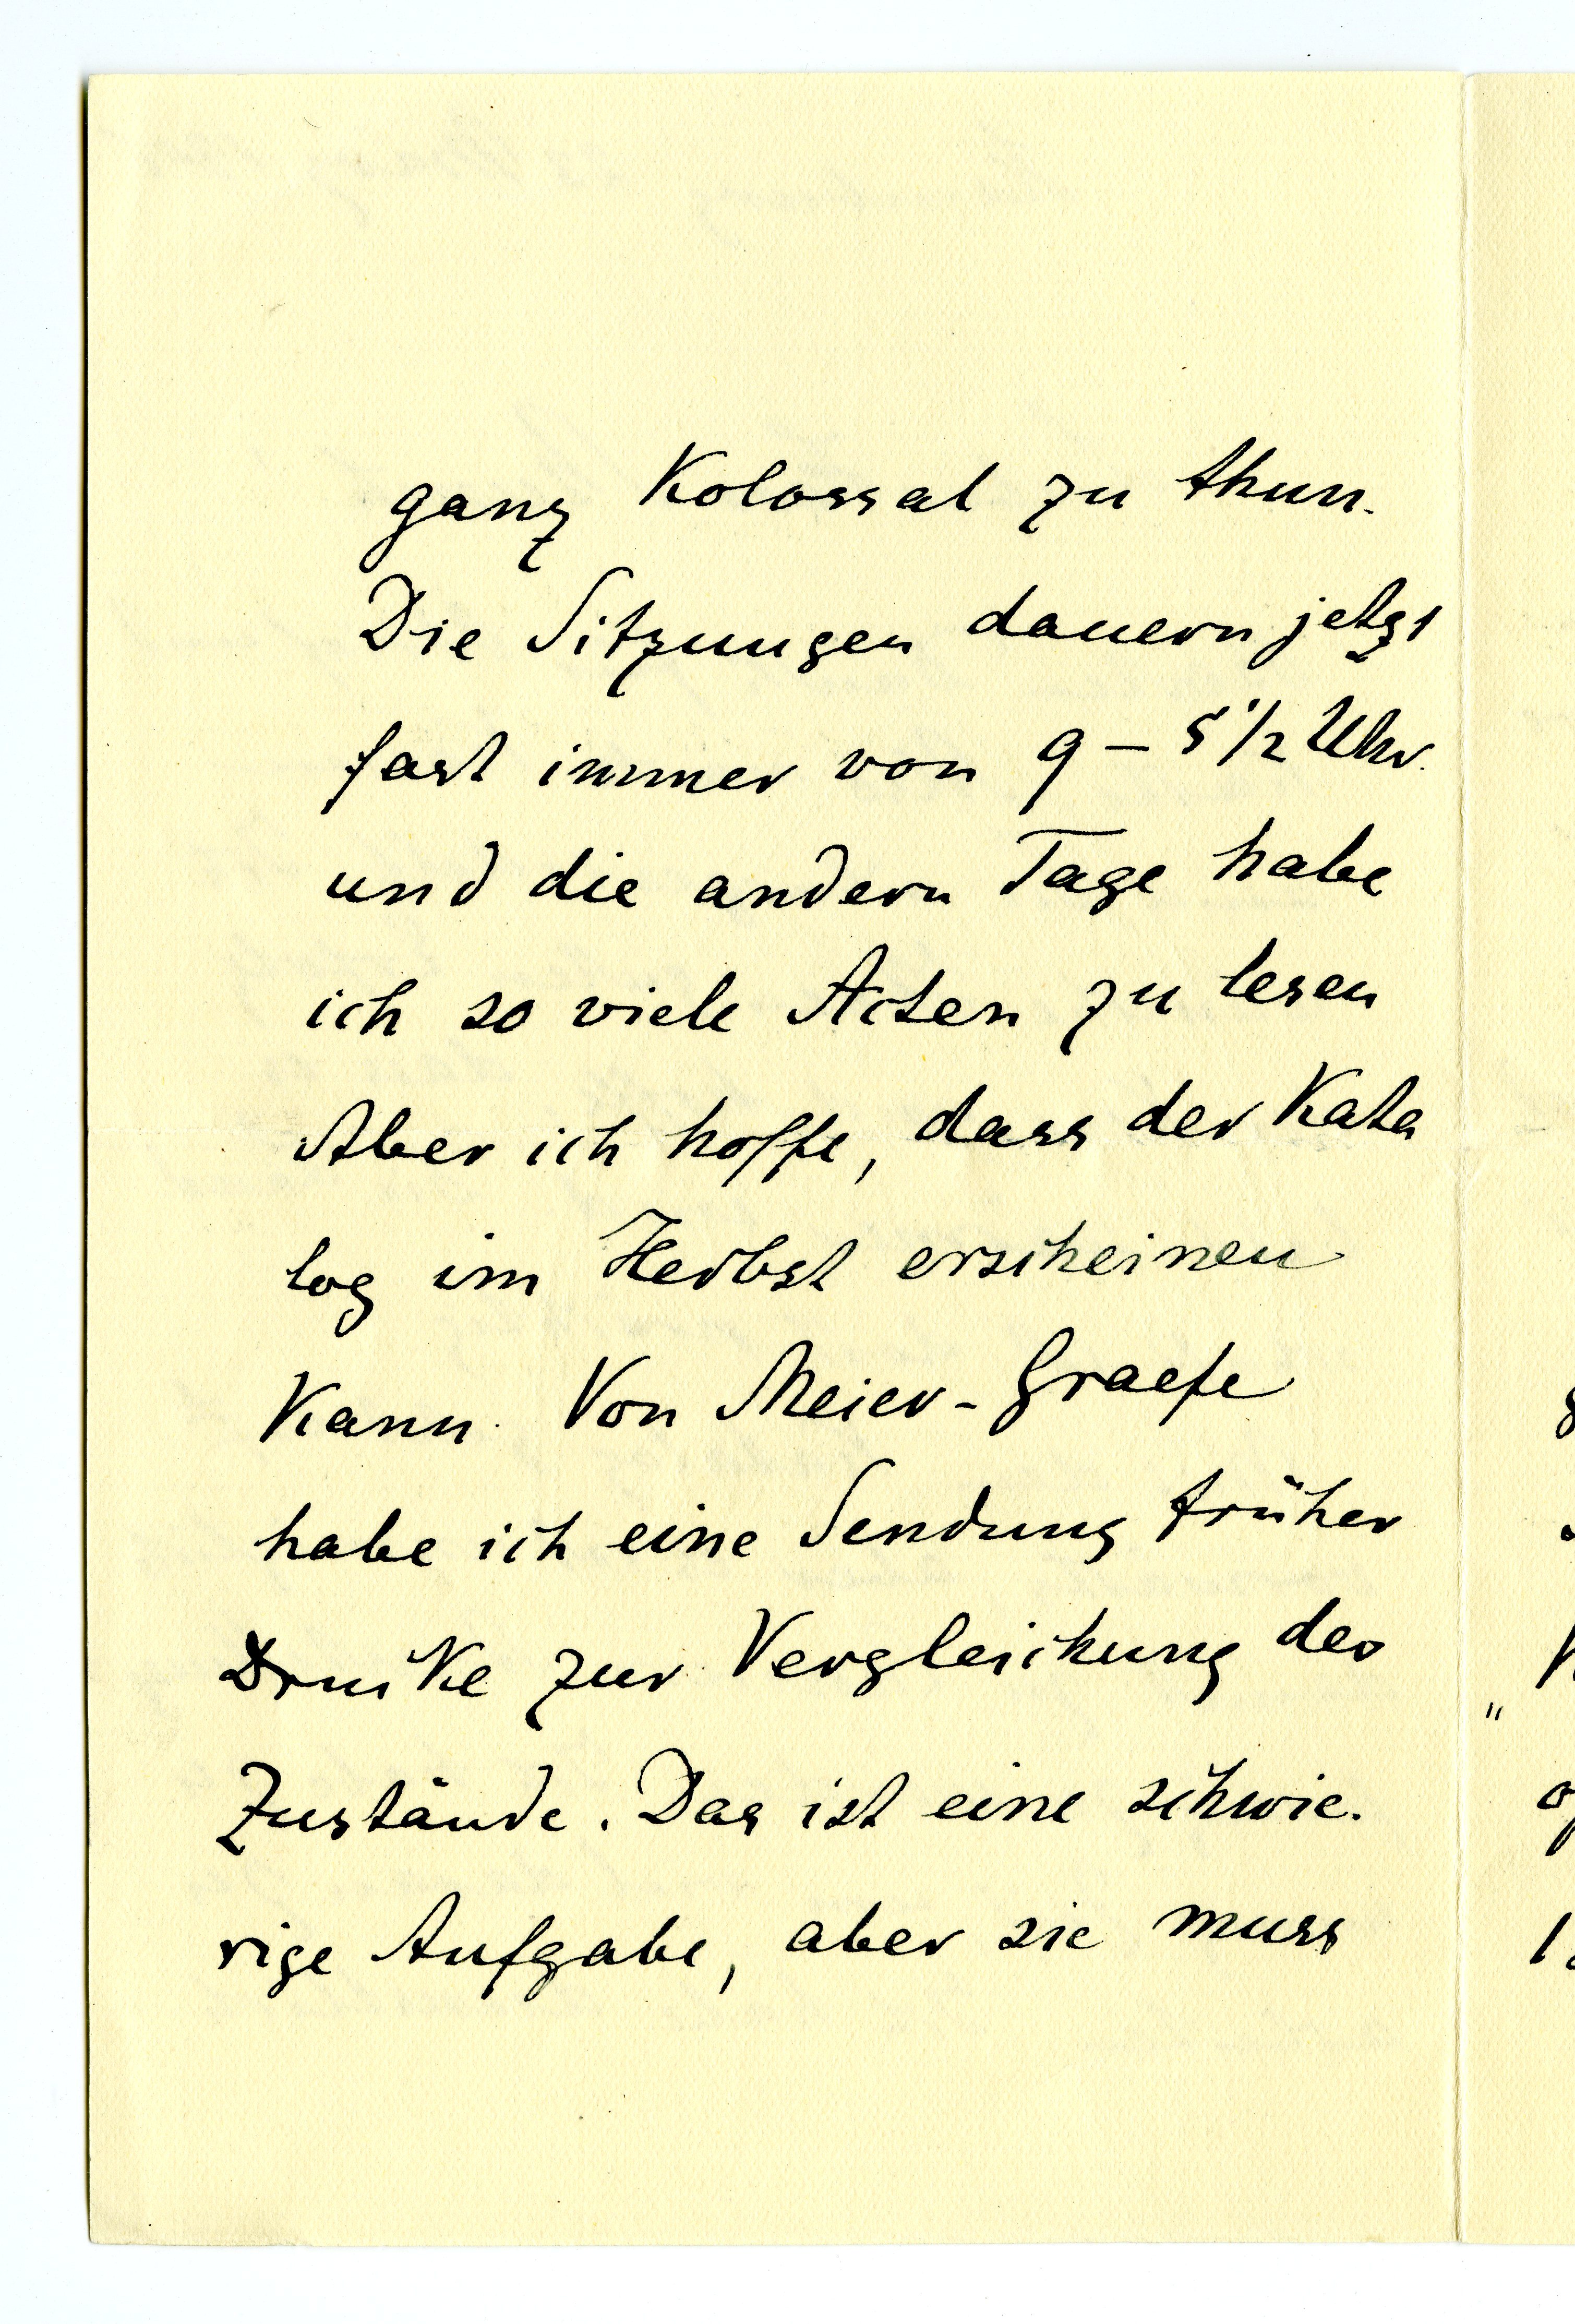 ganz Kolossal zu thun.
Die Sitzungen dauern jetzt
fast immer von 9 – 5 1/2 Uhr.
und die andern Tage habe
ich so viele Acten zu lesen
Aber ich hoffe, dass der Kata
log im Herbst erscheinen
Kann. Von Meier-Graefe
habe ich eine Sendung früher
Drucke zur Vergleichung der
Zustände. Das ist eine schwie.
rige Aufgabe, aber sie muss